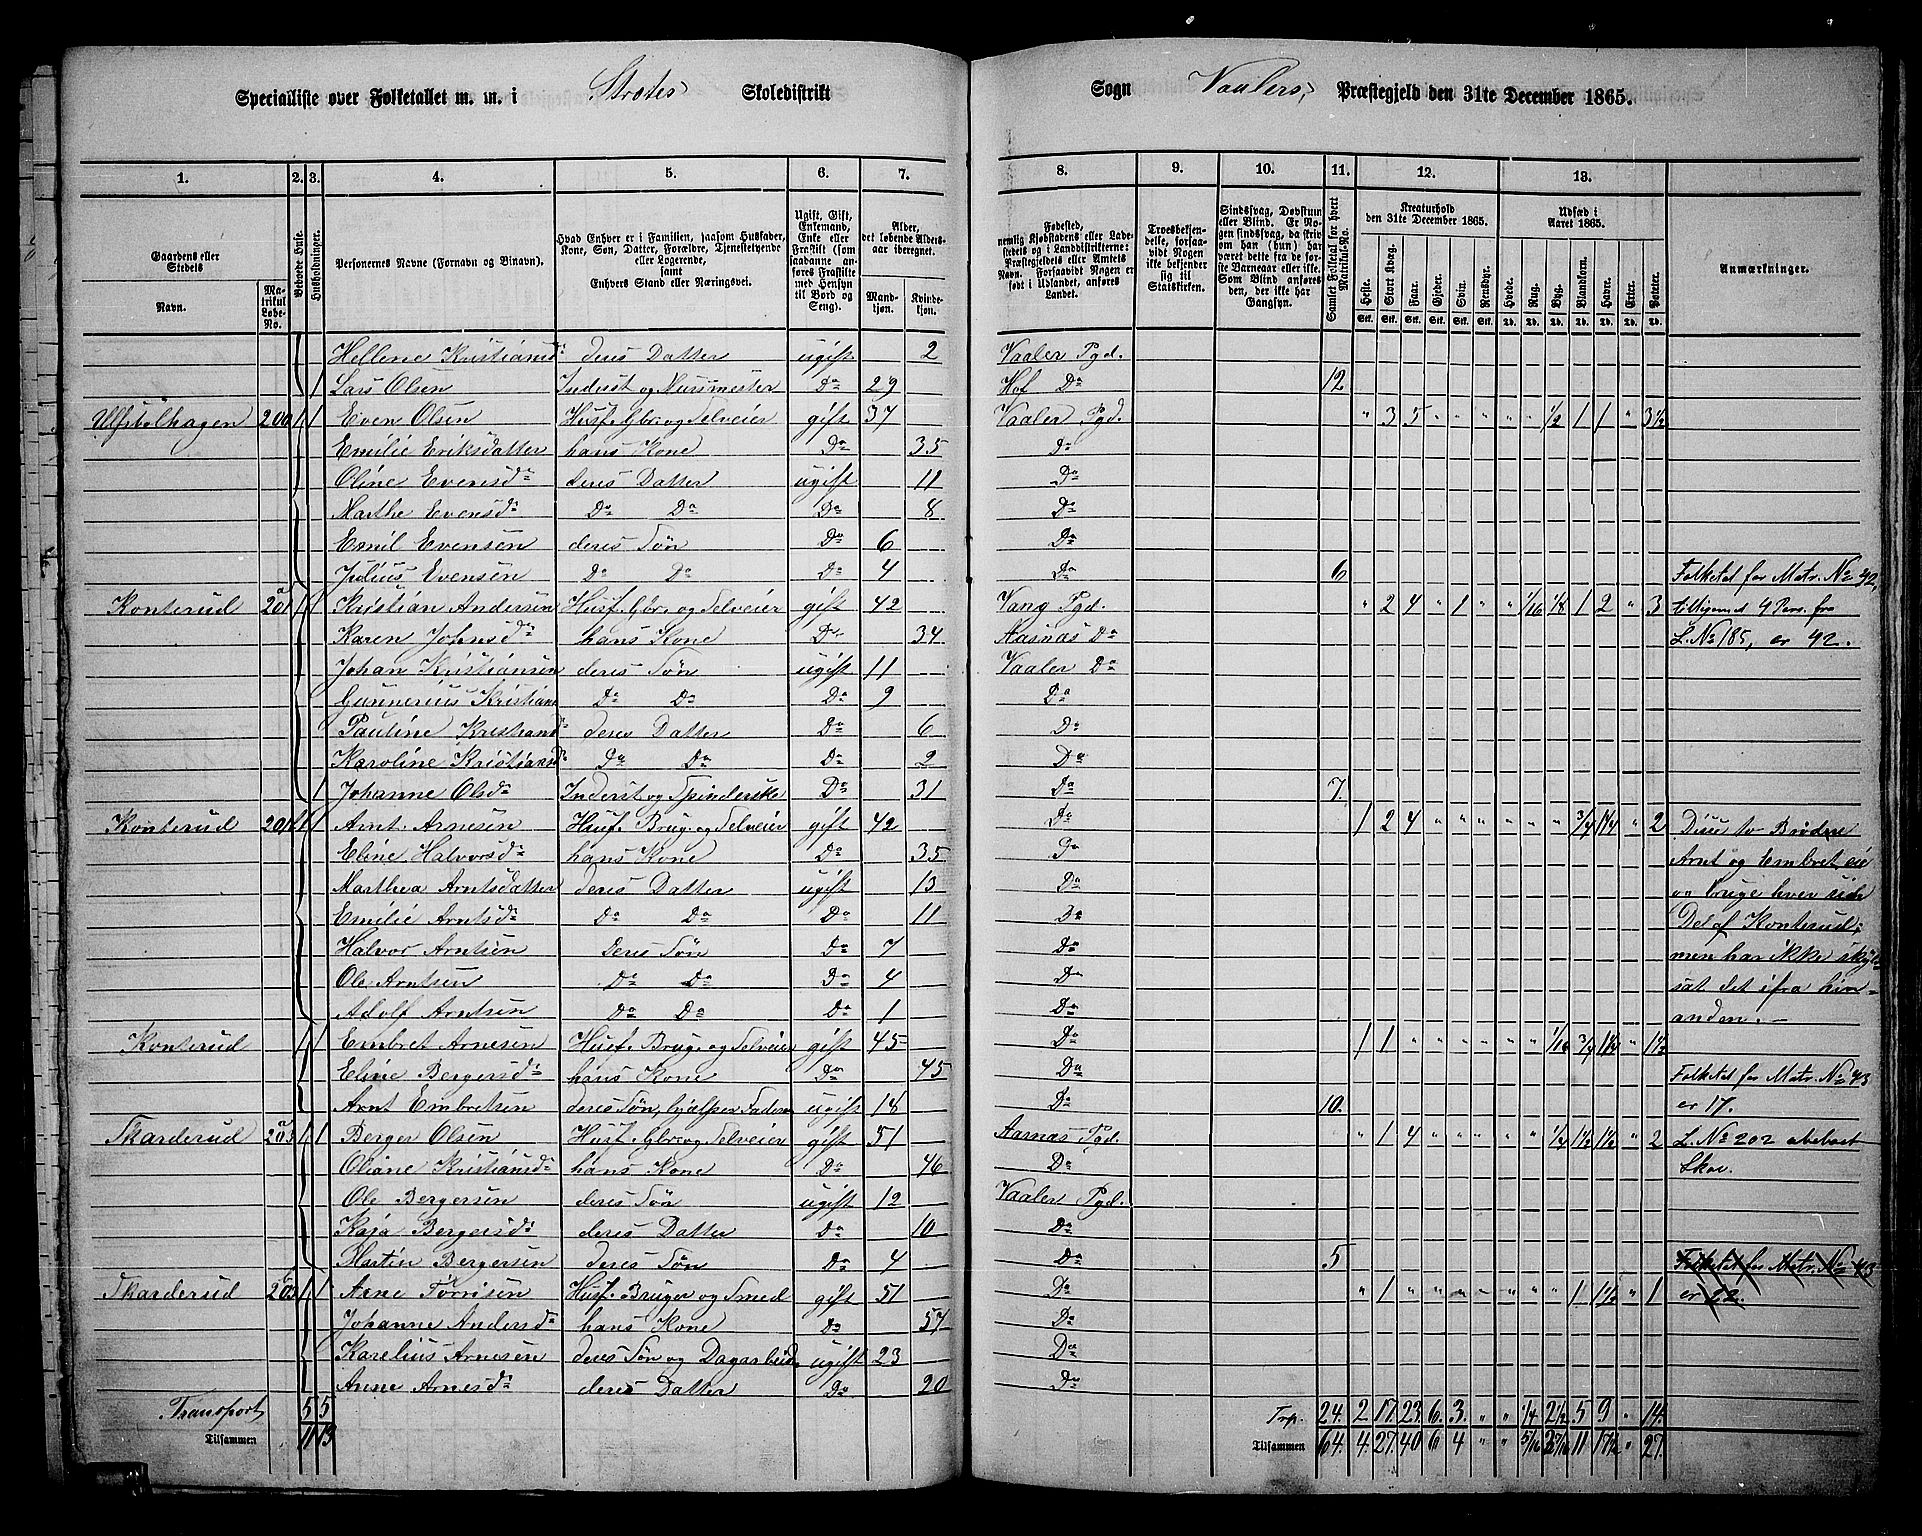 Specialliste over Folketallet m. m. i Strøtes Skoledistrikt Sogn Vaalers Præstegjeld den 31te December 1865.
1. 2. 3. 4. 5. 6. 7. 8. 9. 10. 11. 12. 13.
Gaardens eller Stedets
Navn.
Matrikul Løbe-No.
Beboede Huse.
Husholdninger.
Personernes Navne (Fornavn og Binavn).
Hvad Enhver er i Familien, saasom Husfader, Kone, Søn, Datter, Forældre, Tjenestetyende eller Logerende, samt Enhvers Stand eller Næringsvei.
Ugift, Gift, Enkemand, Enke eller Fraskilt (som saadanne anføres Fraskilte med Hensyn til Bord og Seng).
Alder, det løbende Aldersaar iberegnet.
Mandkjøn. Kvindekjøn.
Fødested, nemlig Kjøbstadens eller Ladestedets og i Landdistrikterne: Præstegjeldets eller Amtets Navn. Forsaavidt Nogen er født i Udlandet, anføres Landet.
Troesbekjendelse, forsaavidt Nogen ikke bekjender sig til Statskirken.
Sindssvag, Døvstum eller Blind. Er Nogen sindssvag, da skriv om han (hun) har været dette fra de første Barneaar eller ikke. Som Blind anføres den, der ikke har Gangsyn.
Samlet Folketal for hvert Matrikul-No.
Kreaturhold den 31te December 1865.
Heste. Stort Kvæg. Faar. Gjeder. Svin. Rensdyr.
Udsæd i Aaret 1865.
Hvede. Rug. Byg. Blandkorn. Havre. Erter. Poteter.
Anmærkninger.
Hellene Kristiansd. deres Datter ugift 2 Vaaler Pgd.
1 Lars Olsen Inderst og Muurmester Do 29 Hof Do 12
Ulfsbølhagen 200 1 1 Even Olsen Husf. Gbr. og Selveier gift 37 Vaaler Pgd. " 3 5 " " " " " 1/2 1 1 " 3 1/2
Emilie Eriksdatter hans Kone Do 35 Do
Oline Evensd. deres Datter ugift 11 Do
Marthe Evensd. Do Do Do 8 Do
Emil Evensen deres Søn Do 6 Do
Julius Evensen Do Do Do 4 Do 6 Folketal for Matr. No 42,
Konterud 201a 1 1 Kristian Andersen Husf. Gbr. og Selveier gift 42 Vang Pgd. " 2 4 " 1 " " 1/16 1/8 1 2 " 3 tilligemed 4 Pers. fra
Karen Johnsd. hans Kone Do 34 Aasnæs Do L. No 185, er 42.
Johan Kristiansen deres Søn ugift 11 Vaaler Do
Gunnerius Kristians Do Do Do 9 Do
Pauline Kristiansd. deres Datter Do 6 Do
Karoline Kristiansd. Do Do Do 2 Do
1 Johanne Olsd. Inderst og Spinderske Do 31 Do 7.
Konterud 201b 1 1 Arnt Arnesen Husf. Brug. og Selveier gift 42 Do 1 2 4 " " " " " " 3/4 1 1/4 " 2 Disse to Brødre
Eline Halvorsd. hans Kone Do 35 Do Arnt og Embret eie
Marthea Arntsdatter deres Datter ugift 13 Do og bruge hver sin
Emilie Arntsd. Do Do Do 11 Do Del af Konterud;
Halvor Arntsen deres Søn Do 7 Do men har ikke skyld-
Ole Arntsen Do Do Do 4 Do sat det ifra hin-
Adolf Arntsen Do Do Do 1 Do anden. -
Konterud 1 1 Embret Arnesen Husf. Brug. og Selveier gift 45 Do 1 1 " " " " " " 1/16 3/4 1 1/4 " 1 1/2
Eline Bergersd. hans Kone Do 45 Do Folketal for Matr. No 43
Arnt Embretsen deres Søn, hjælper Faderen ugift 18 Do 10. er 17.
Skarderud 203a 1 1 Berger Olsen Husf. Gbr. og Selveier gift 51 Aasnæs Pgd. " 1 4 " " " " " 1/4 1 1/2 1 1/2 " 2 L. No 202 ubeboet
Oliane Kristiansd. hans Kone Do 46 Do Skov.
Ole Bergersen deres Søn ugift 12 Vaaler Pgd.
Kaja Bergersd. deres Datter Do 10 Do
Martin Bergersen deres Søn Do 4 Do 5 Folketal for Matr. No 43
Skarderud 203b 1 1 Arne Torrisen Husf. Bruger og Smed gift 51 Do " 1 " " " " " " " 1 1 1/2 " 1 er 22.
Johanne Andersd. hans Kone Do 57 Do
Karelius Arnesen deres Søn og Dagarbeid. ugift 23 Do
Anne Arnesd. deres Datter Do 20 Do
Transport 5 5 Trp. 24. 2 17. 23. 6 3. " " 1/4 2 1/2 5 9 " 14.
Tilsammen 11 13 Tilsammen 64. 4. 27. 40 6 4 " " 5/16 2 7/16 11 17 1/2 " 27.